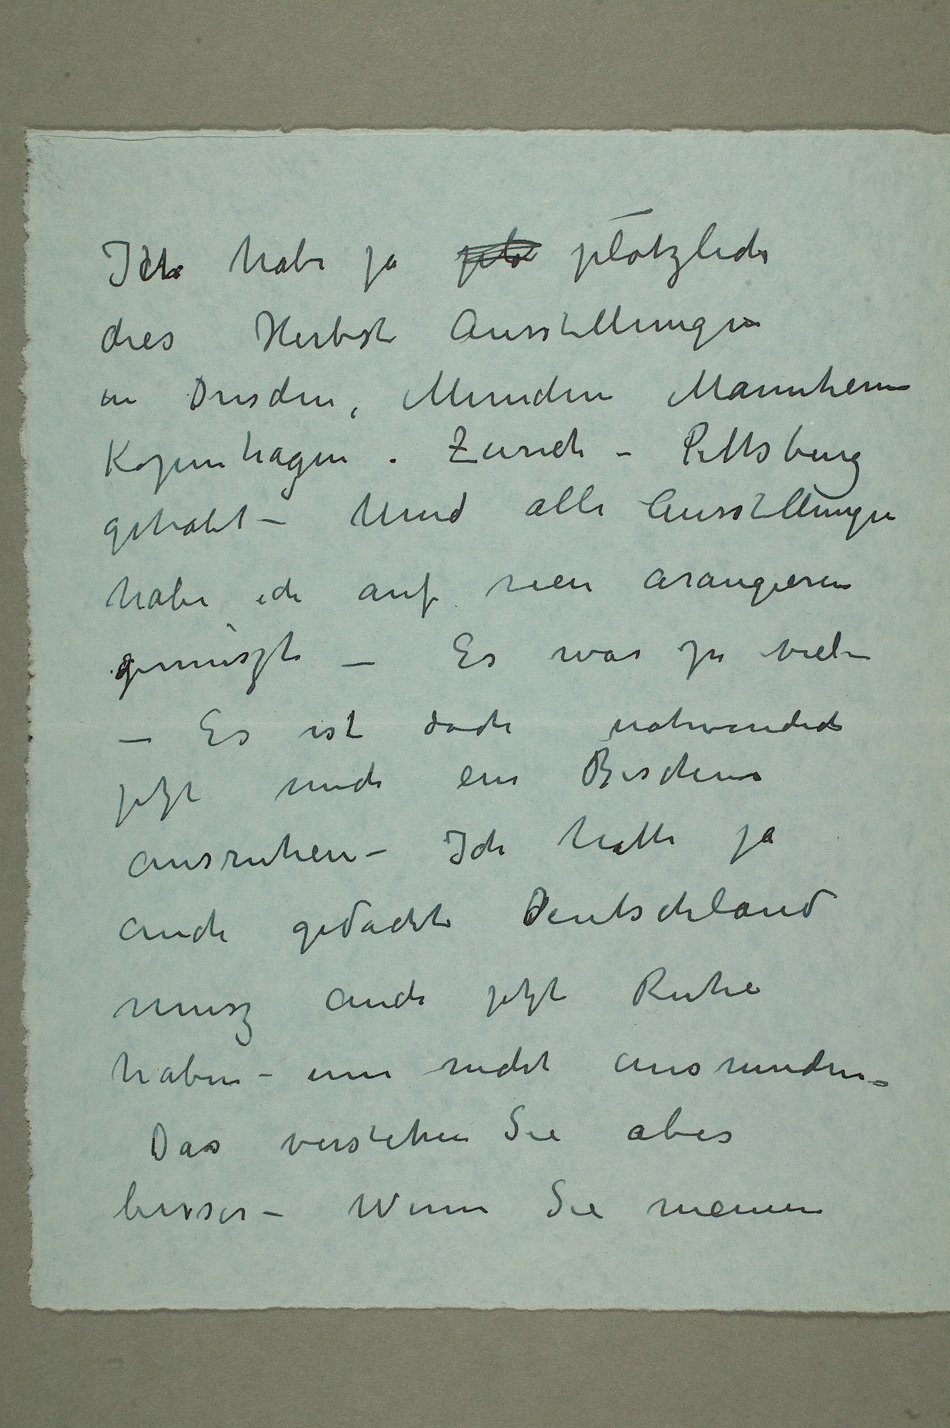 Ich habe ja ~~plö~~ plötzlich
dies Herbst Ausstellungen
in Dresden, München Mannheim
Kopenhagen. Zürich – Pittsburg
gehabt – Und alle Ausstellungen
habe ich auf neu arangieren
gemuszt – Es war zu viel –
– Es ist doch notwendich
jetzt mich ein Bischen
ausruhen – Ich hatte ja
auch gedacht Deutschland
musz auch jetzt Ruhe
haben – um nicht
Das verstehen Sie aber
besser – Wenn Sie meinen